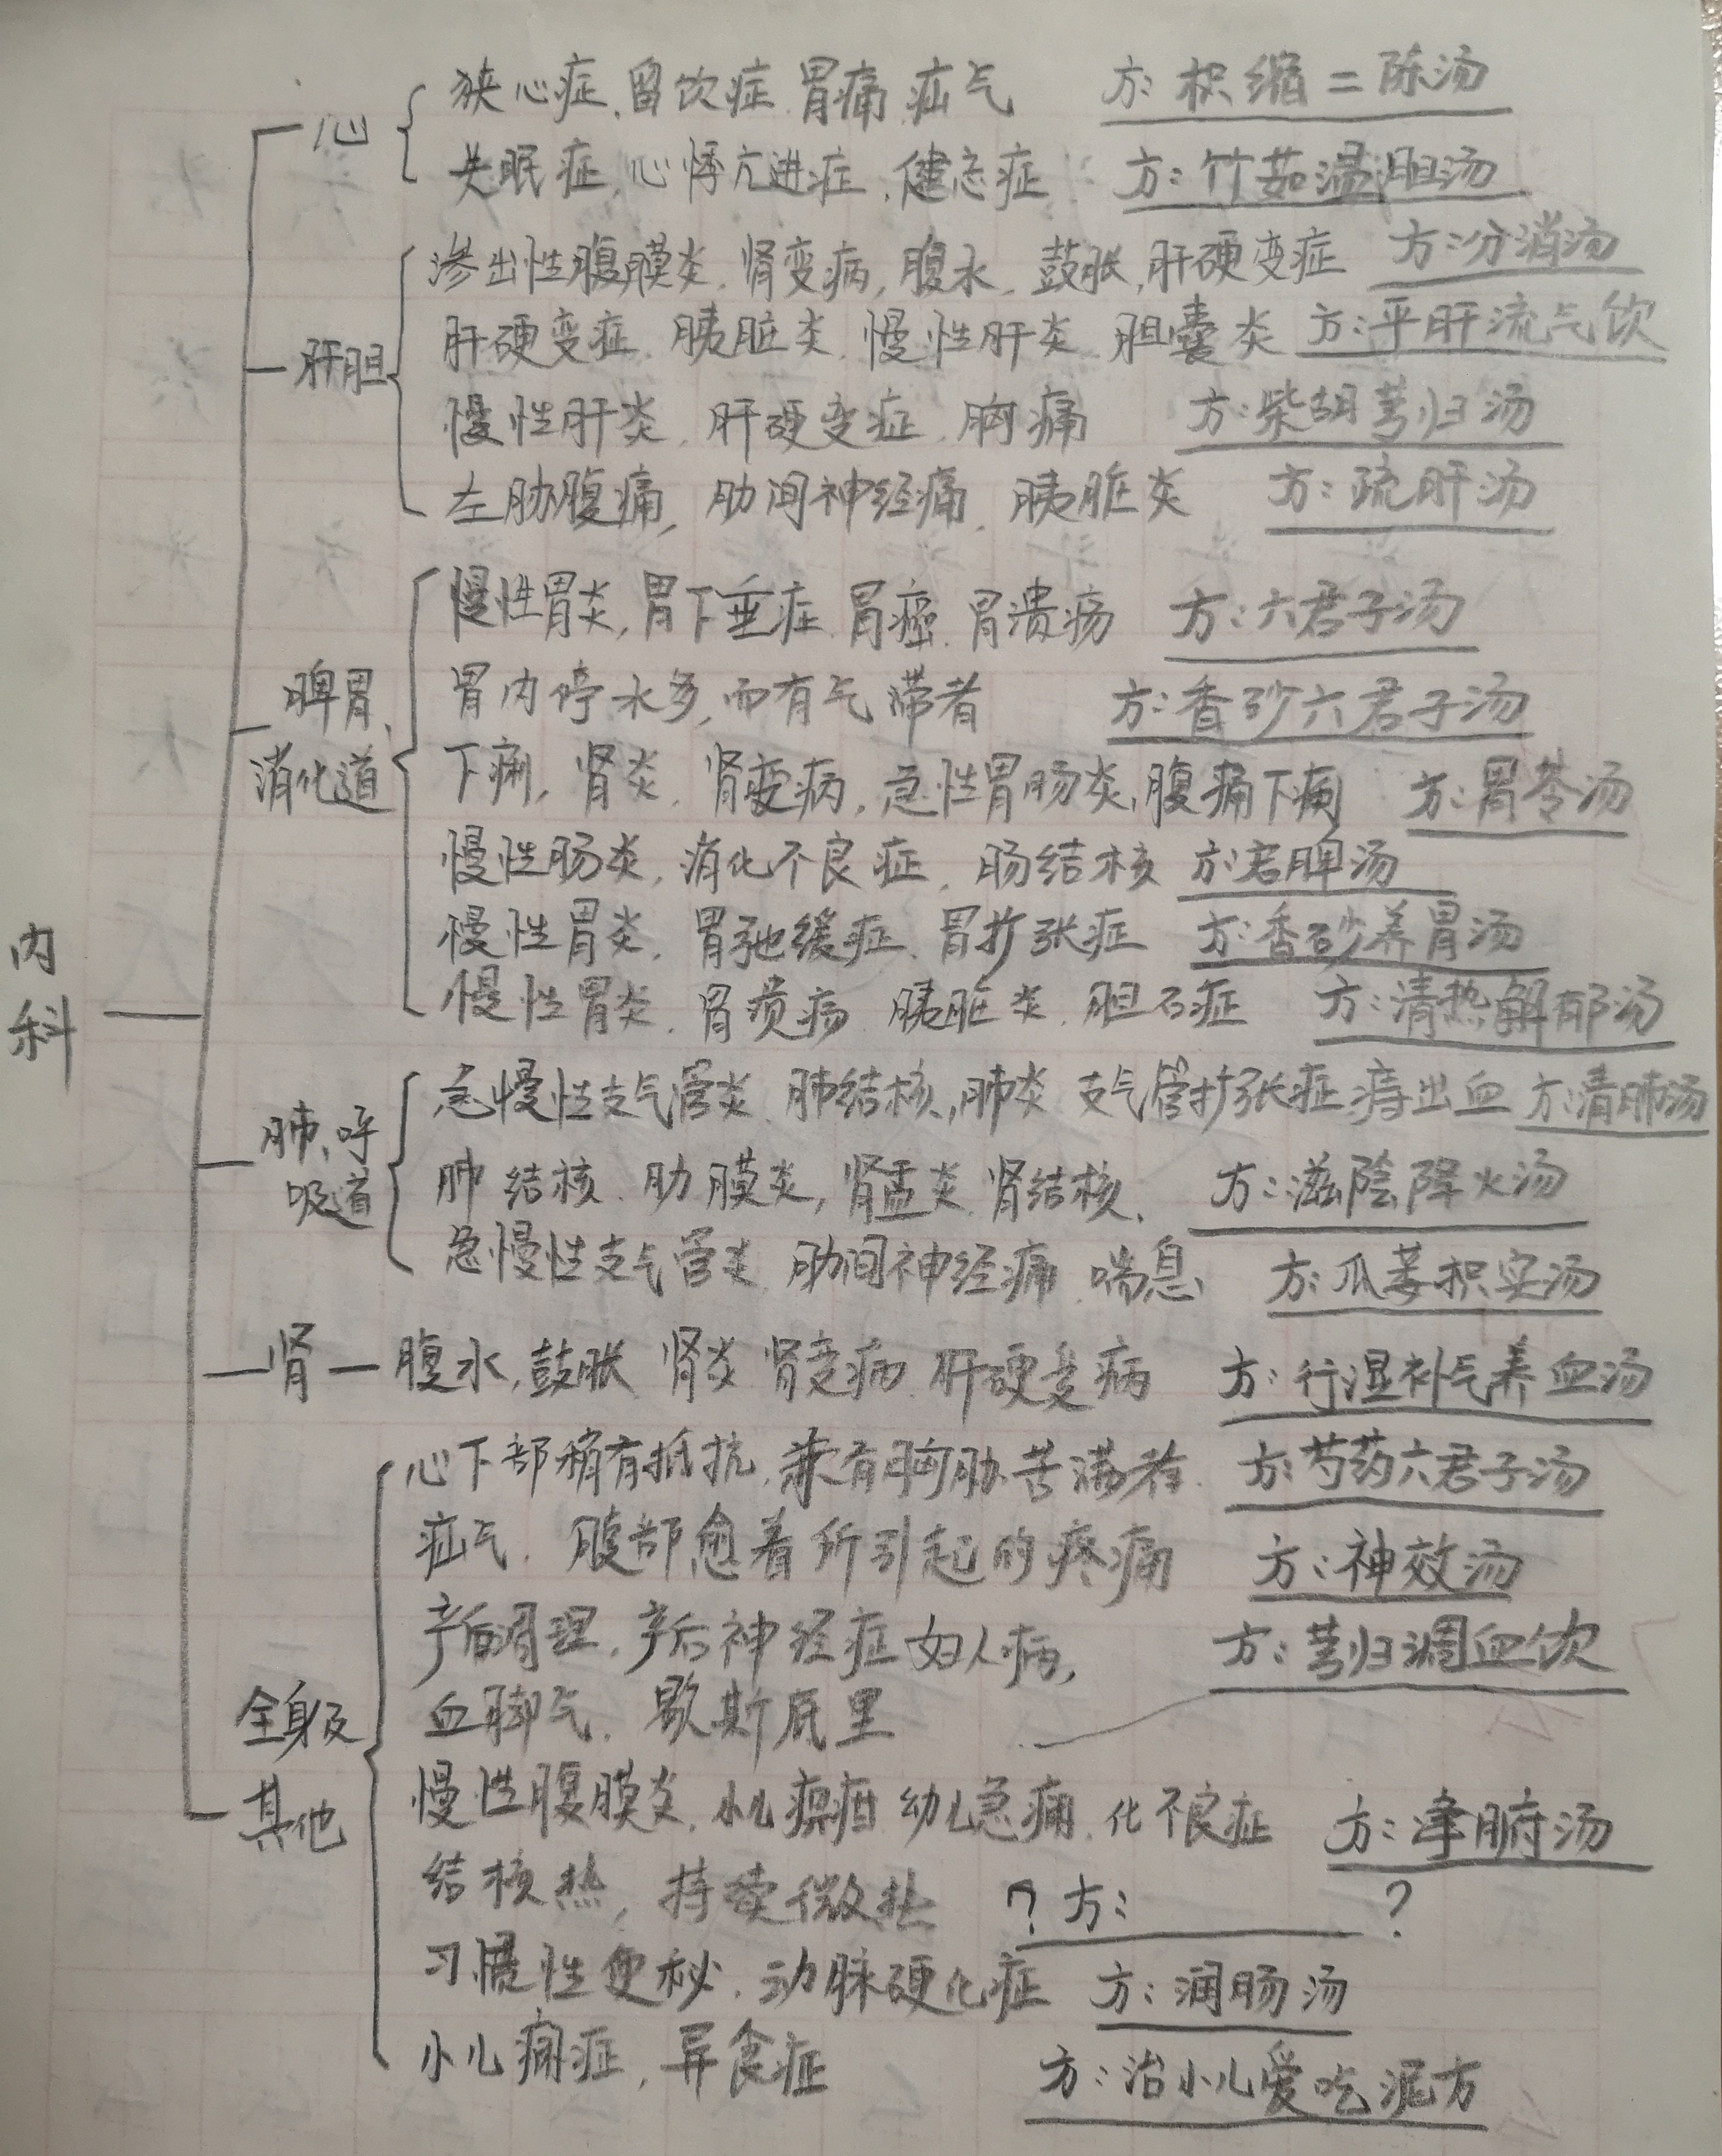 内科
心
狭心症、留饮症、胃痛、疝气 方:枳缩二陈汤
失眠症,心悸亢进症、健忘症 方:竹茹温胆汤
肝胆
渗出性腹膜炎,肾变病,腹水、鼓胀,肝硬变症 方:分消汤
肝硬变症、胰脏炎、慢性肝炎、胆囊炎 方:平肝流气饮
慢性肝炎、肝硬变症、胸痛 方:柴胡芎归汤
左胁腹痛,肋间神经痛、胰脏炎 方:疏肝汤
脾胃、
消化道
慢性胃炎,胃下垂症、胃癌、胃溃疡 方:六君子汤
胃内停水多,而有气滞者 方:香砂六君子汤
下痢,肾炎,肾变病,急性胃肠炎,腹痛下痢 方:胃苓汤
慢性肠炎,消化不良症,肠结核 方:启脾汤
慢性胃炎,胃弛缓症、胃扩张症 方:香砂养胃汤
慢性胃炎、胃溃疡、胰脏炎、胆石症 方:清热解郁汤
肺、呼
吸道
急慢性支气管炎、肺结核,肺炎、支气管扩张症、痔出血 方:清肺汤
肺结核、肋膜炎,肾盂炎、肾结核、 方:滋陰降火汤
急慢性支气管炎、肋间神经痛、喘息 方:瓜蒌枳实汤
肾 腹水,鼓胀、肾炎、肾变病、肝硬变病 方:行湿补气养血汤
全身及
其他
心下部稍有抵抗,兼有胸胁苦满者 方:芍药六君子汤
疝气、腹部愈着所引起的疼痛 方:神效汤
产后调理、产后神经症、妇人病, 方:芎归调血饮
血脚气、歇斯底里
慢性腹膜炎、小儿 幼儿急痫、化不良症 方: 腑汤
结核热,持续微热 ? 方: ?
习惯性便秘、动脉硬化症 方:润肠汤
小儿痫症,异食症 方:治小儿爱吃泥方